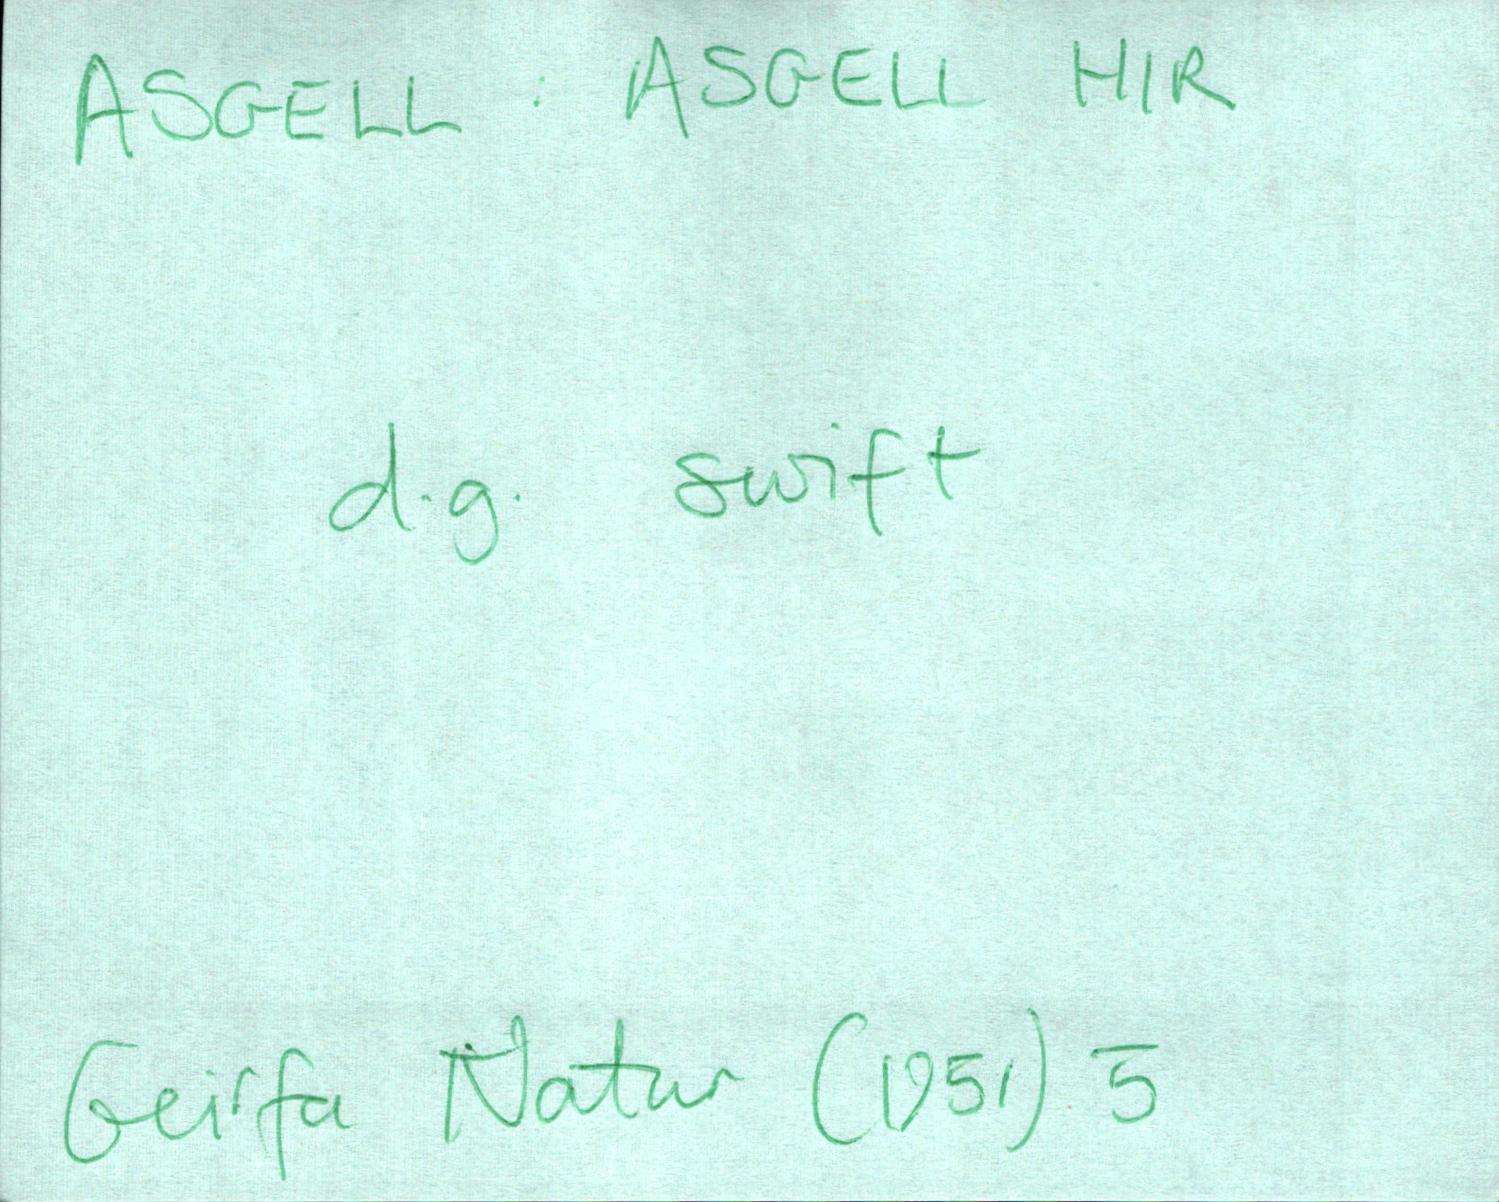 ASGELL : ASGELL HIR
d.g. swift
Geirfa Natur (1951) 5